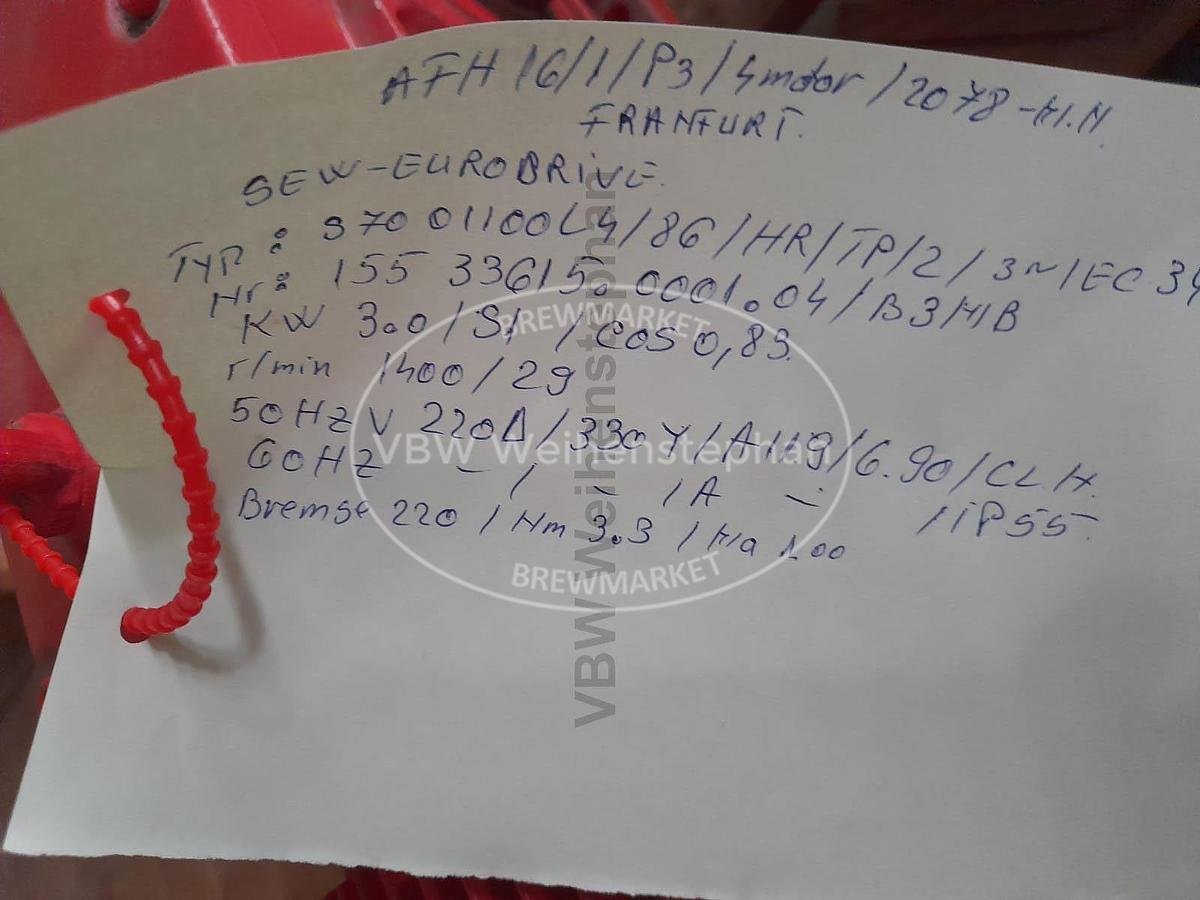 AFH 16/1/P3/4motor/2078-H.N
FRANFURT.
SEW-EUROBRIVE.
TYP: S70 01100L4/86/HR/TP/2/3~IEC 34
Nr: 155 33615.0001.04/B3H1B
KW 3.0/S1/COS 0,83.
r/min 1400/29
50HZ V 220Δ/330Y/A11,9/6.90/CL H.
60HZ -/-/A - /iP55.
Bremse 220/Nm 3.3/Ma 100
BREWMARKET
VBW Weihenstephan
BREWMARKET
VBW Weihenstephan